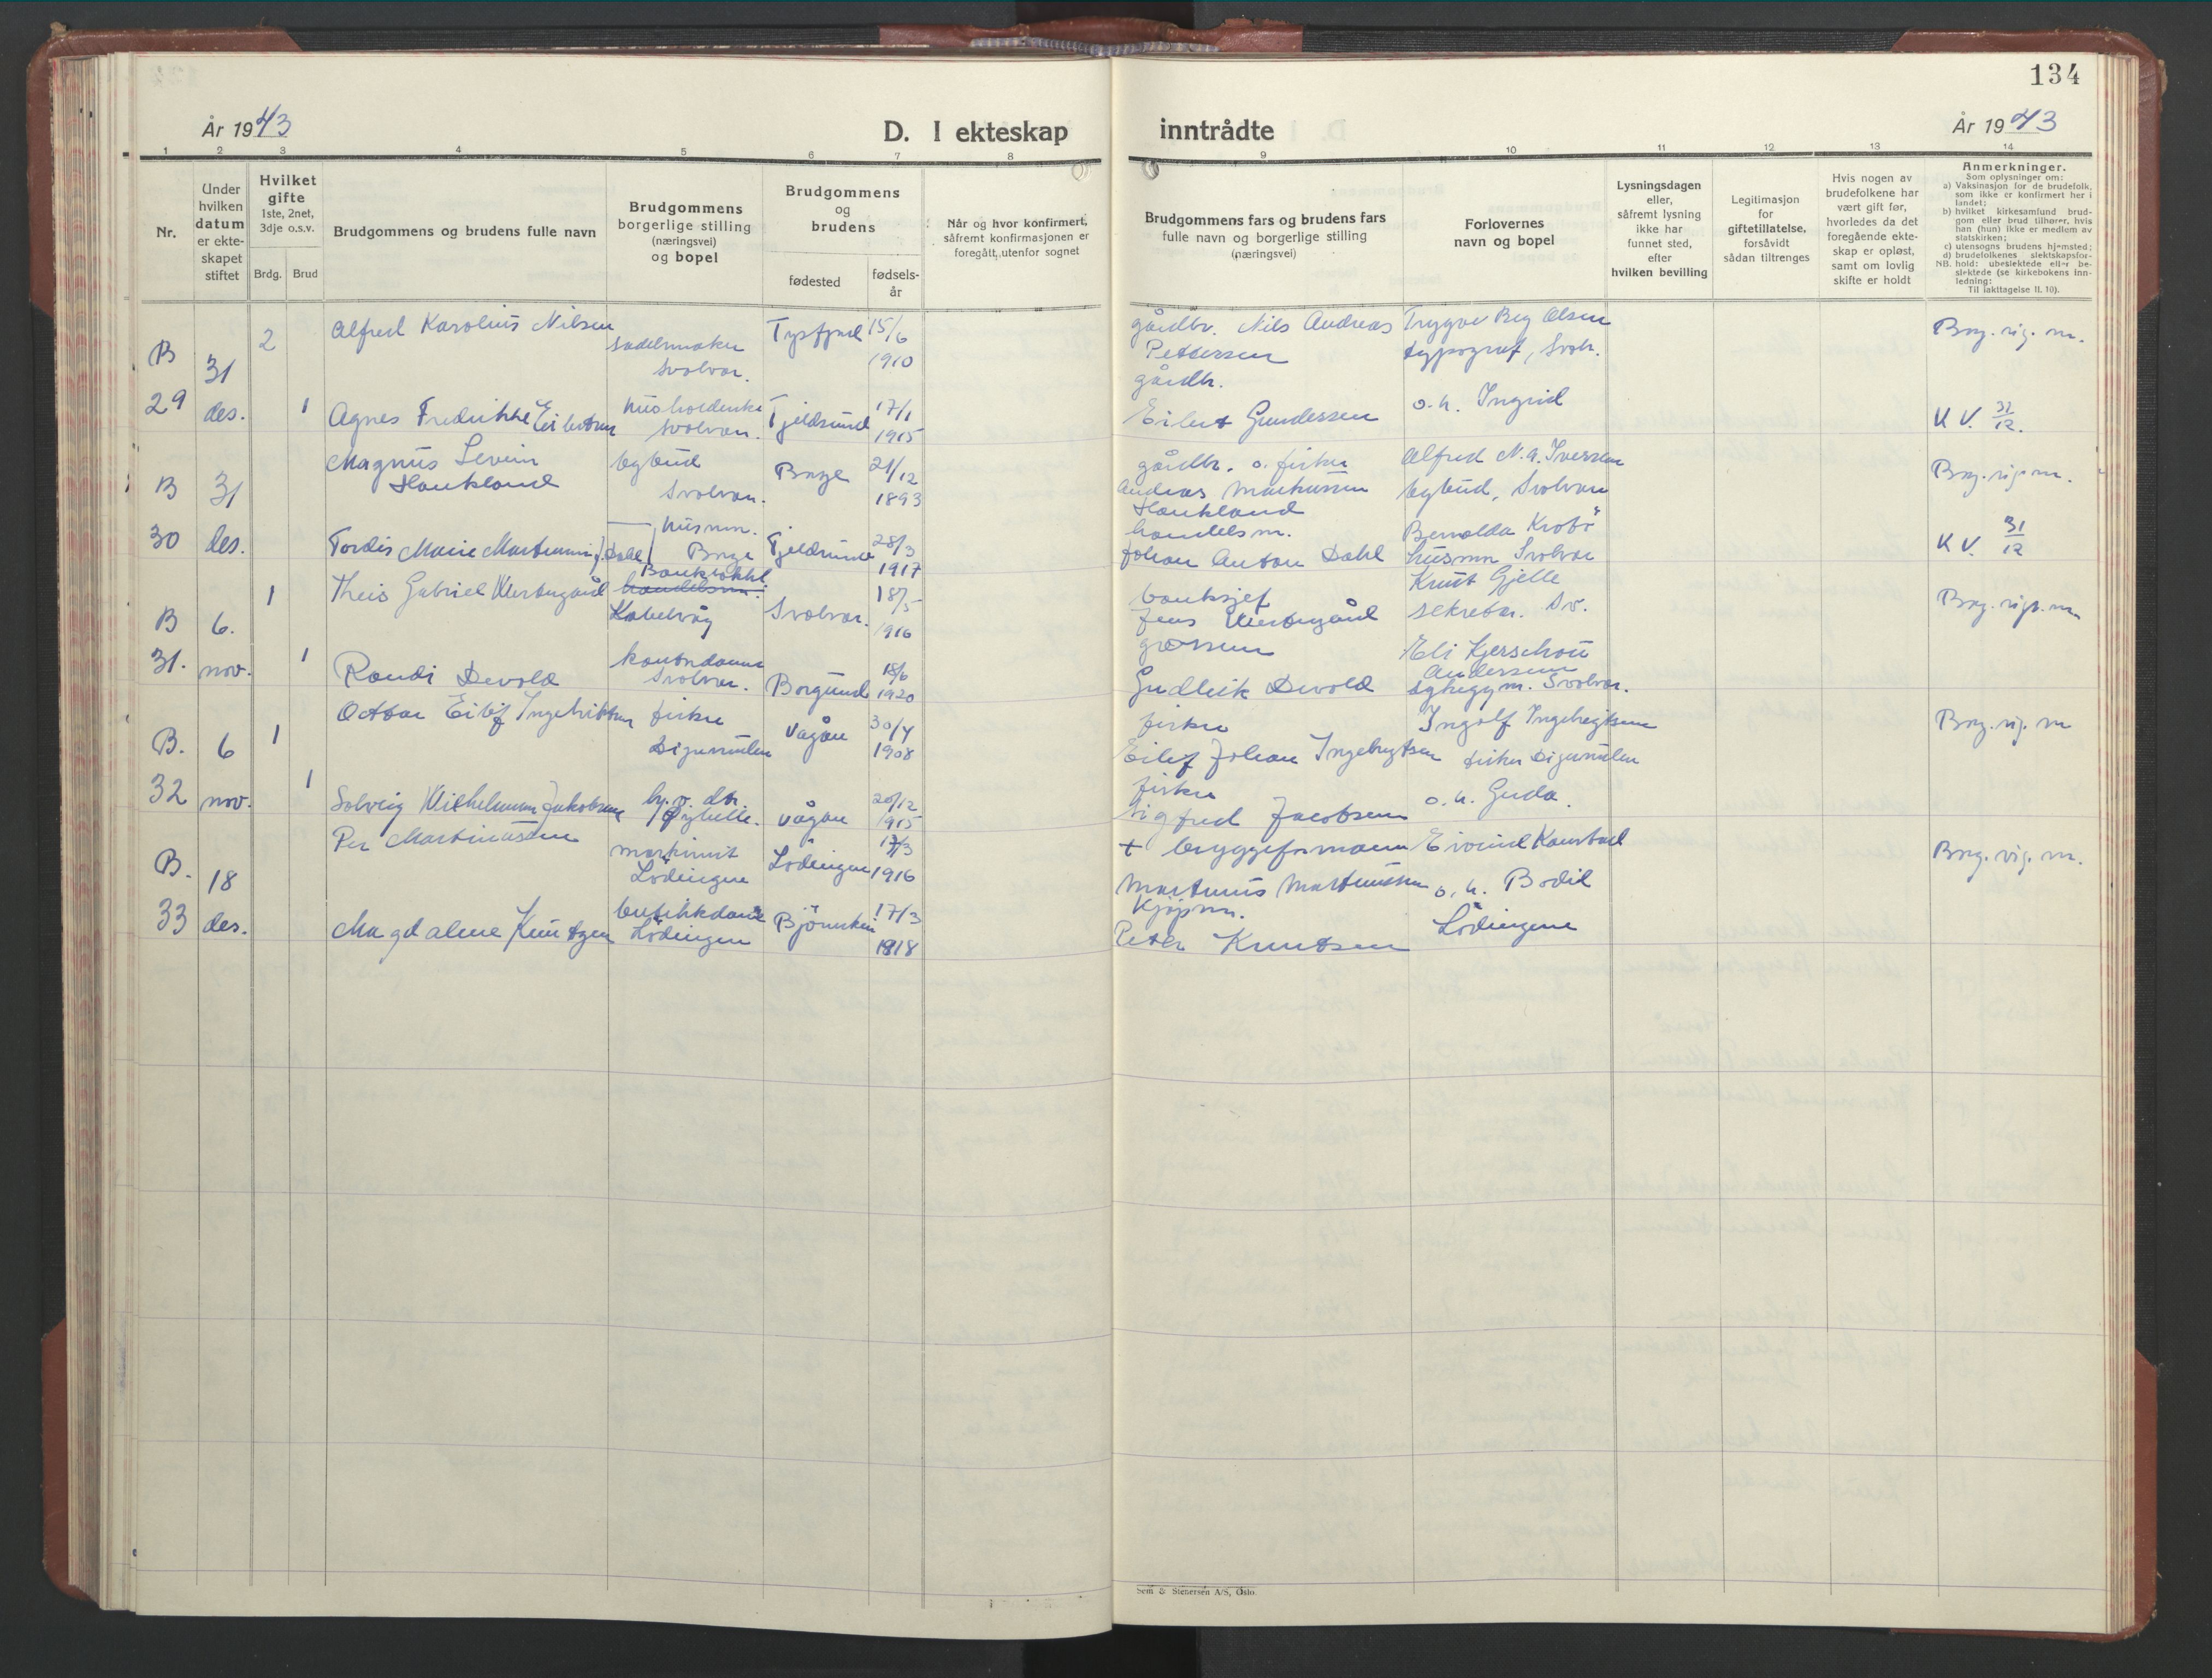 134
År 1943
D. I ekteskap
inntrådte
År 1943
1 2 3 4 5 6 7 8 9 10 11 12 13 14
Nr.
Under
hvilken
datum
er ekte-
skapet
stiftet
Hvilket
gifte
1ste, 2net,
3dje o.s.v.
Brdg. Brud
Brudgommens og brudens fulle navn
Brudgommens
borgerlige stilling
(næringsvei)
og bopel
Brudgommens
og
brudens
fødested
fødsels-
år
Når og hvor konfirmert,
såfremt konfirmasjonen er
foregått utenfor sognet
Brudgommens fars og brudens fars
fulle navn og borgerlige stilling
(næringsvei)
Forlovernes
navn og bopel
Lysningsdagen
eller,
såfremt lysning
ikke har
funnet sted,
efter
hvilken bevilling
Legitimasjon
for
giftetillatelse,
forsåvidt
sådan tiltrenges
Hvis nogen av
brudefolkene har
vært gift før,
hvorledes da det
foregående ekte-
skap er opløst,
samt om lovlig
skifte er holdt
Anmerkninger.
Som oplysninger om:
a) Vaksinasjon for de brudefolk,
som ikke er konfirmert her i
landet;
b) hvilket kirkesamfund brud-
gom eller brud tilhører, hvis
han (hun) ikke er medlem av
statskirken;
c) utensogns brudens hjemsted;
d) brudefolkenes slektskapsfor-
NB. hold: ubeslektede eller be-
slektede (se kirkebokens inn-
ledning:
Til iakttagelse II. 10).
B
29
31
des.
2
Alfred Karolius Nilsen
sadelmaker
Svolvær.
Tysfjord
15/6
1910
gårdbr. Nils Andreas
Pettersen
Trygve Berg Olsen
typograf, Svolv.
Borg. vig. m.
1
Agnes Fredrikke Eilertsen
husholderske
Svolvær.
Tjeldsund
17/1
1915
gårdbr.
Eilert Gundersen
o. h. Ingrid
K V. 31/12.
B
30
31
des.
Magnus Severin
Haukland
bybud
Svolvær.
Borge
21/12
1893
gårdbr. o. fisker
Andreas Markussen
Haukland
Alfred N. A. Iversen
bybud, Svolvær
Borg. vig. m.
Tordis Marie Martinussen f. Dahl
husm.
Borge
Tjeldsund
28/3
1917
handelsm.
Johan Anton Dahl
Bernolda Krobö
husm Svolvær
K V. 31/12
B
31.
6.
nov.
1
Theis Gabriel Westergård
handelsm.
Kabelvåg
Svolvær.
18/5
1916
banksjef
Jens Westergård
Knut Gjelle
sekretær. Sv.
Borg. vigs. m
1
Randi Devold
kontordame
Svolvær.
Borgund
18/6
1920
grosserer
Gudleik Devold
Eli Kjerschou
Andersen
sykegym. Svolvær.
B.
32
6
nov.
1
Ottar Eilif Ingebrigtsen
fisker
Digermulen
Vågan
30/4
1908
fisker
Eilif Johan Ingebrigtsen
Ingolf Ingebrigtsen
fisker Digermulen
Borg. vig. m
1
Solveig Wilhelmine Jakobsen
hj. v. dtr.
Vågan
20/12
1915
fisker
Sigfred Jacobsen
o. h. Guda.
B.
33
18
des.
Per Martinussen
maskinist
Lödingen
Lödingen
17/3
1916
+ bryggeformann
Martinus Martinussen
Eivind Kanstad
o. h. Bodil
Lödingen
Borg. vig. m.
Magdalene Knutzen
butikkdame
Lödingen
17/3
1918
Kjöpm.
Peter Knutsen
Sem & Stenersen A/S, Oslo.